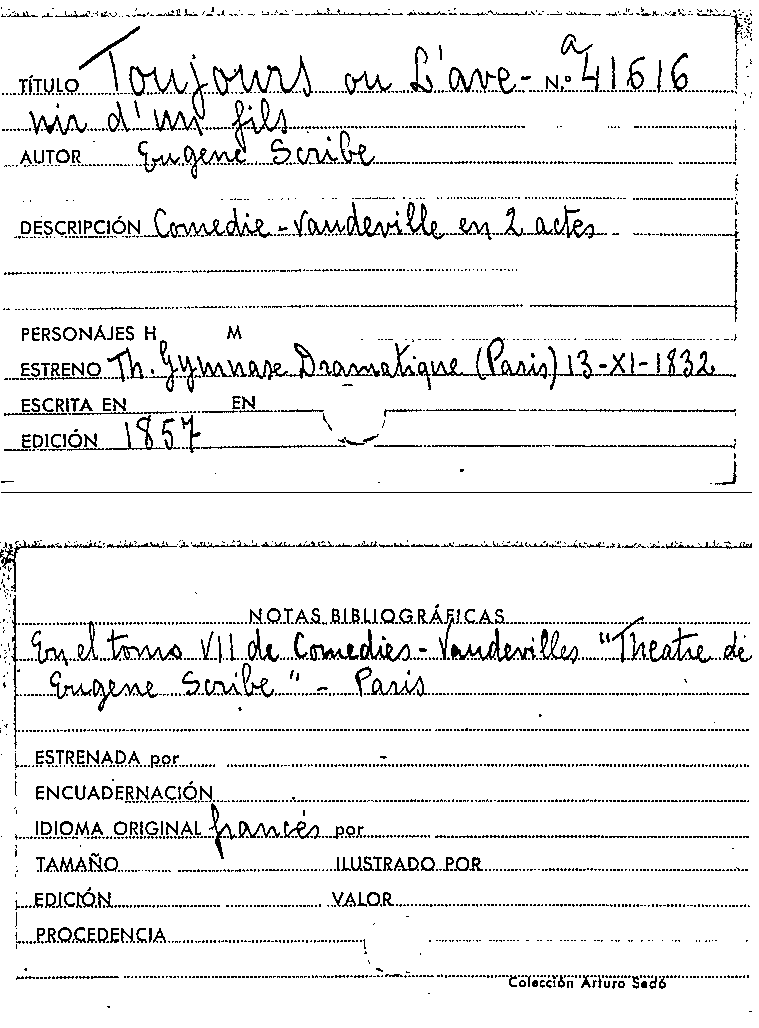 TÍTULO Toujours ou L'ave- N.º a 41616
nir d'un fils
AUTOR Eugene Scribe
DESCRIPCIÓN Comedie-Vaudeville en 2 actes
PERSONAJES H M
ESTRENO Th. Gymnase Dramatique (Paris) 13-XI-1832
ESCRITA EN EN
EDICIÓN 1857
NOTAS BIBLIOGRÁFICAS
En el tomo VII de Comedies-Vaudevilles "Theatre de
Eugene Scribe" - Paris
ESTRENADA por -
ENCUADERNACIÓN
IDIOMA ORIGINAL francés por
TAMAÑO ILUSTRADO POR
EDICIÓN VALOR
PROCEDENCIA
Colección Arturo Sedó